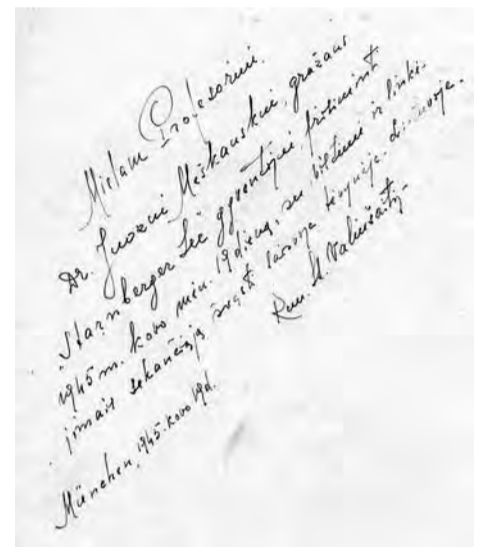 Mielam Profesoriui,
Dr. Juozui Meškauskui, gražaus
"Starnberger See gyventojui, prisimint
1945 m. kovo mėn. 19 dieną, su viltimi ir linkė-
jimais sekančiąją švęst laisvoje tėvynėje Lietuvoje.
Kun. St. Valiušaitis
München, 1945. kovo 19 d.